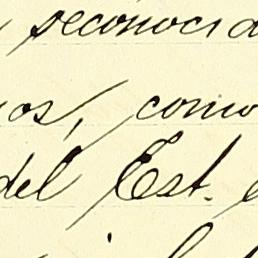 reconocid
os, como
del Est.